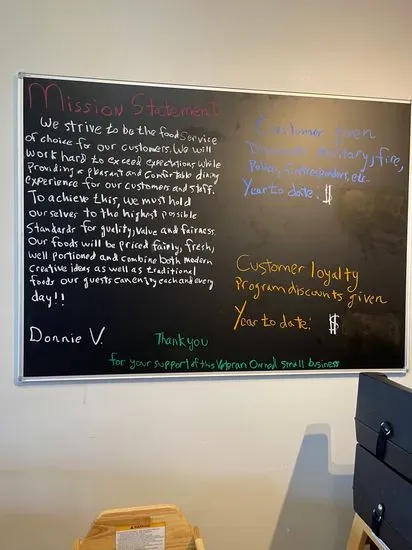 Mission Statement
We strive to be the food service
of choice for our customers. We will
work hard to exceed expectations while
Providing a pleasant and comfortable dining
experience for our customers and staff.
To achieve this, we must hold
ourselves to the highest possible
Standards for quality, value and fairness.
Our foods will be priced fairly, fresh,
well portioned and combine both modern
creative ideas as well as traditional
foods our guests can enjoy each and every
day!!
Donnie V.
Customer given
Discounts military, fire,
Police, firstresponders, etc.
Year to date: $
Customer loyalty
Program discounts given
Year to date: $
Thank you
for your support of this Veteran Owned small business